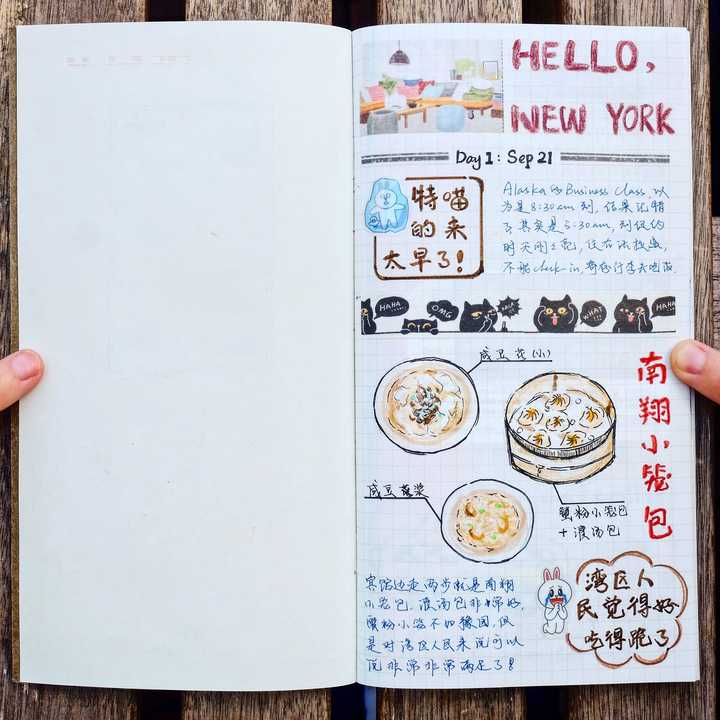 HELLO,
NEW YORK
Day 1 : Sep 21
特喵
的来
太早了!
Alaska的Business Class,以
为是8:30am到,结果记错
了其实是5:30am,到纽约
时天刚
不能check in,寄存行李去吃饭.
HAHA
OMG
WHAT
HAHA
咸豆花(小)
南翔小笼包
咸豆蔥浆
蟹粉小笼包
+灌汤包
宾馆边走两步就是南翔
小笼包,灌汤包非常好,
蟹粉小笼不如豫园,但
是对湾区人民来说可以
说非常非常满足了!
湾区人
民觉得好
吃得跪了